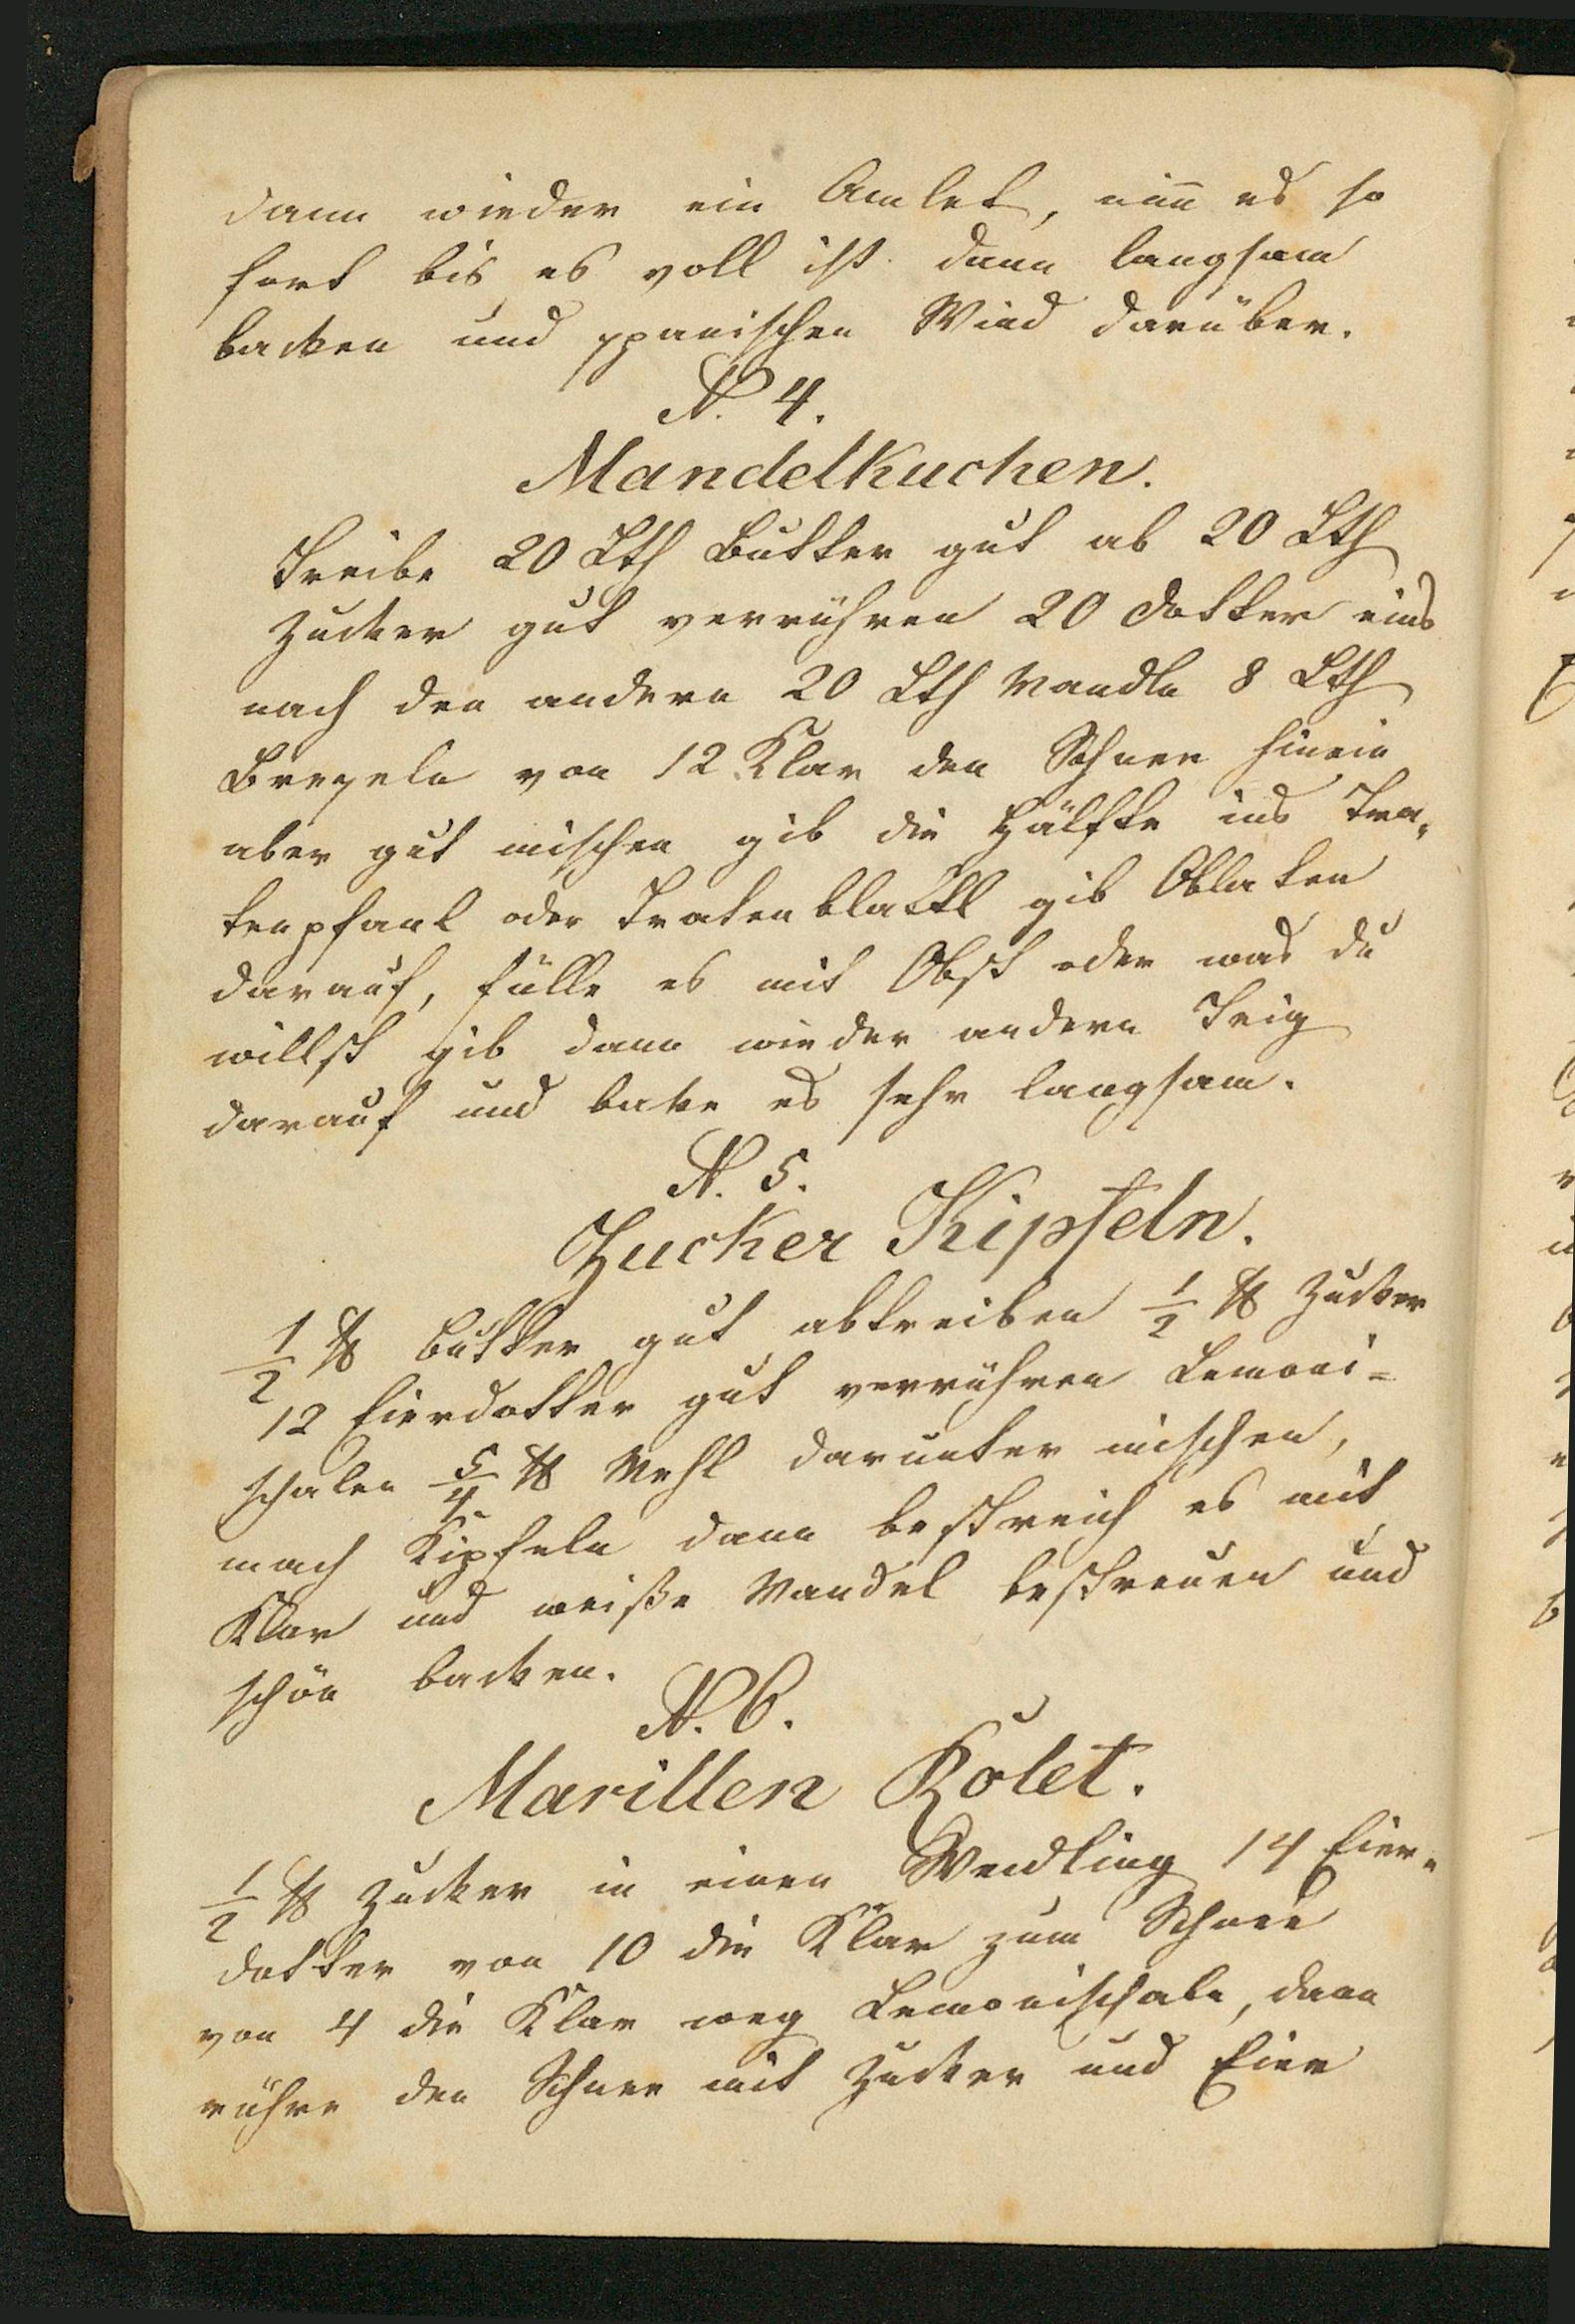 dann wieder ein Amlet, nim̅ es so
fort bis es voll ist dann langsam
backen und spanischen Wind darüber.
N. 4.
Mandelkuchen.
Treibe 20 Lth Butter gut ab 20 Lth
Zucker gut verrühren 20 Dotter eins
nach den andern 20 Lth Mandln 8 Lth
Breseln von 12 Klar den Schnee hinein
aber gut mischen gib die Hälfte ins Tra-
tenpfanl oder Tratenblattl gib Oblaten
darauf, fülle es mit Obst oder was du
willst gib dann wieder andern Teig
darauf und backe es sehr langsam.
N. 5.
Zucker Kipfeln.
1/2 ℔ Butter gut abtreiben 1/2 ℔ Zucker
12 Eierdotter gut verrühren Lemoni=
schalen 5/4 ℔ Mehl darunter mischen,
mach Kipfeln dann bestreich es mit
Klar und weiße Mandel bestreuen und
schön backen.
N. 6.
Marillen Kolet.
1/2 ℔ Zucker in einen Weidling 14 Eier-
dotter von 10 die Klar zum Schnee
von 4 die Klar weg Lemonischale, dann
rühre den Schnee mit Zucker und Eier